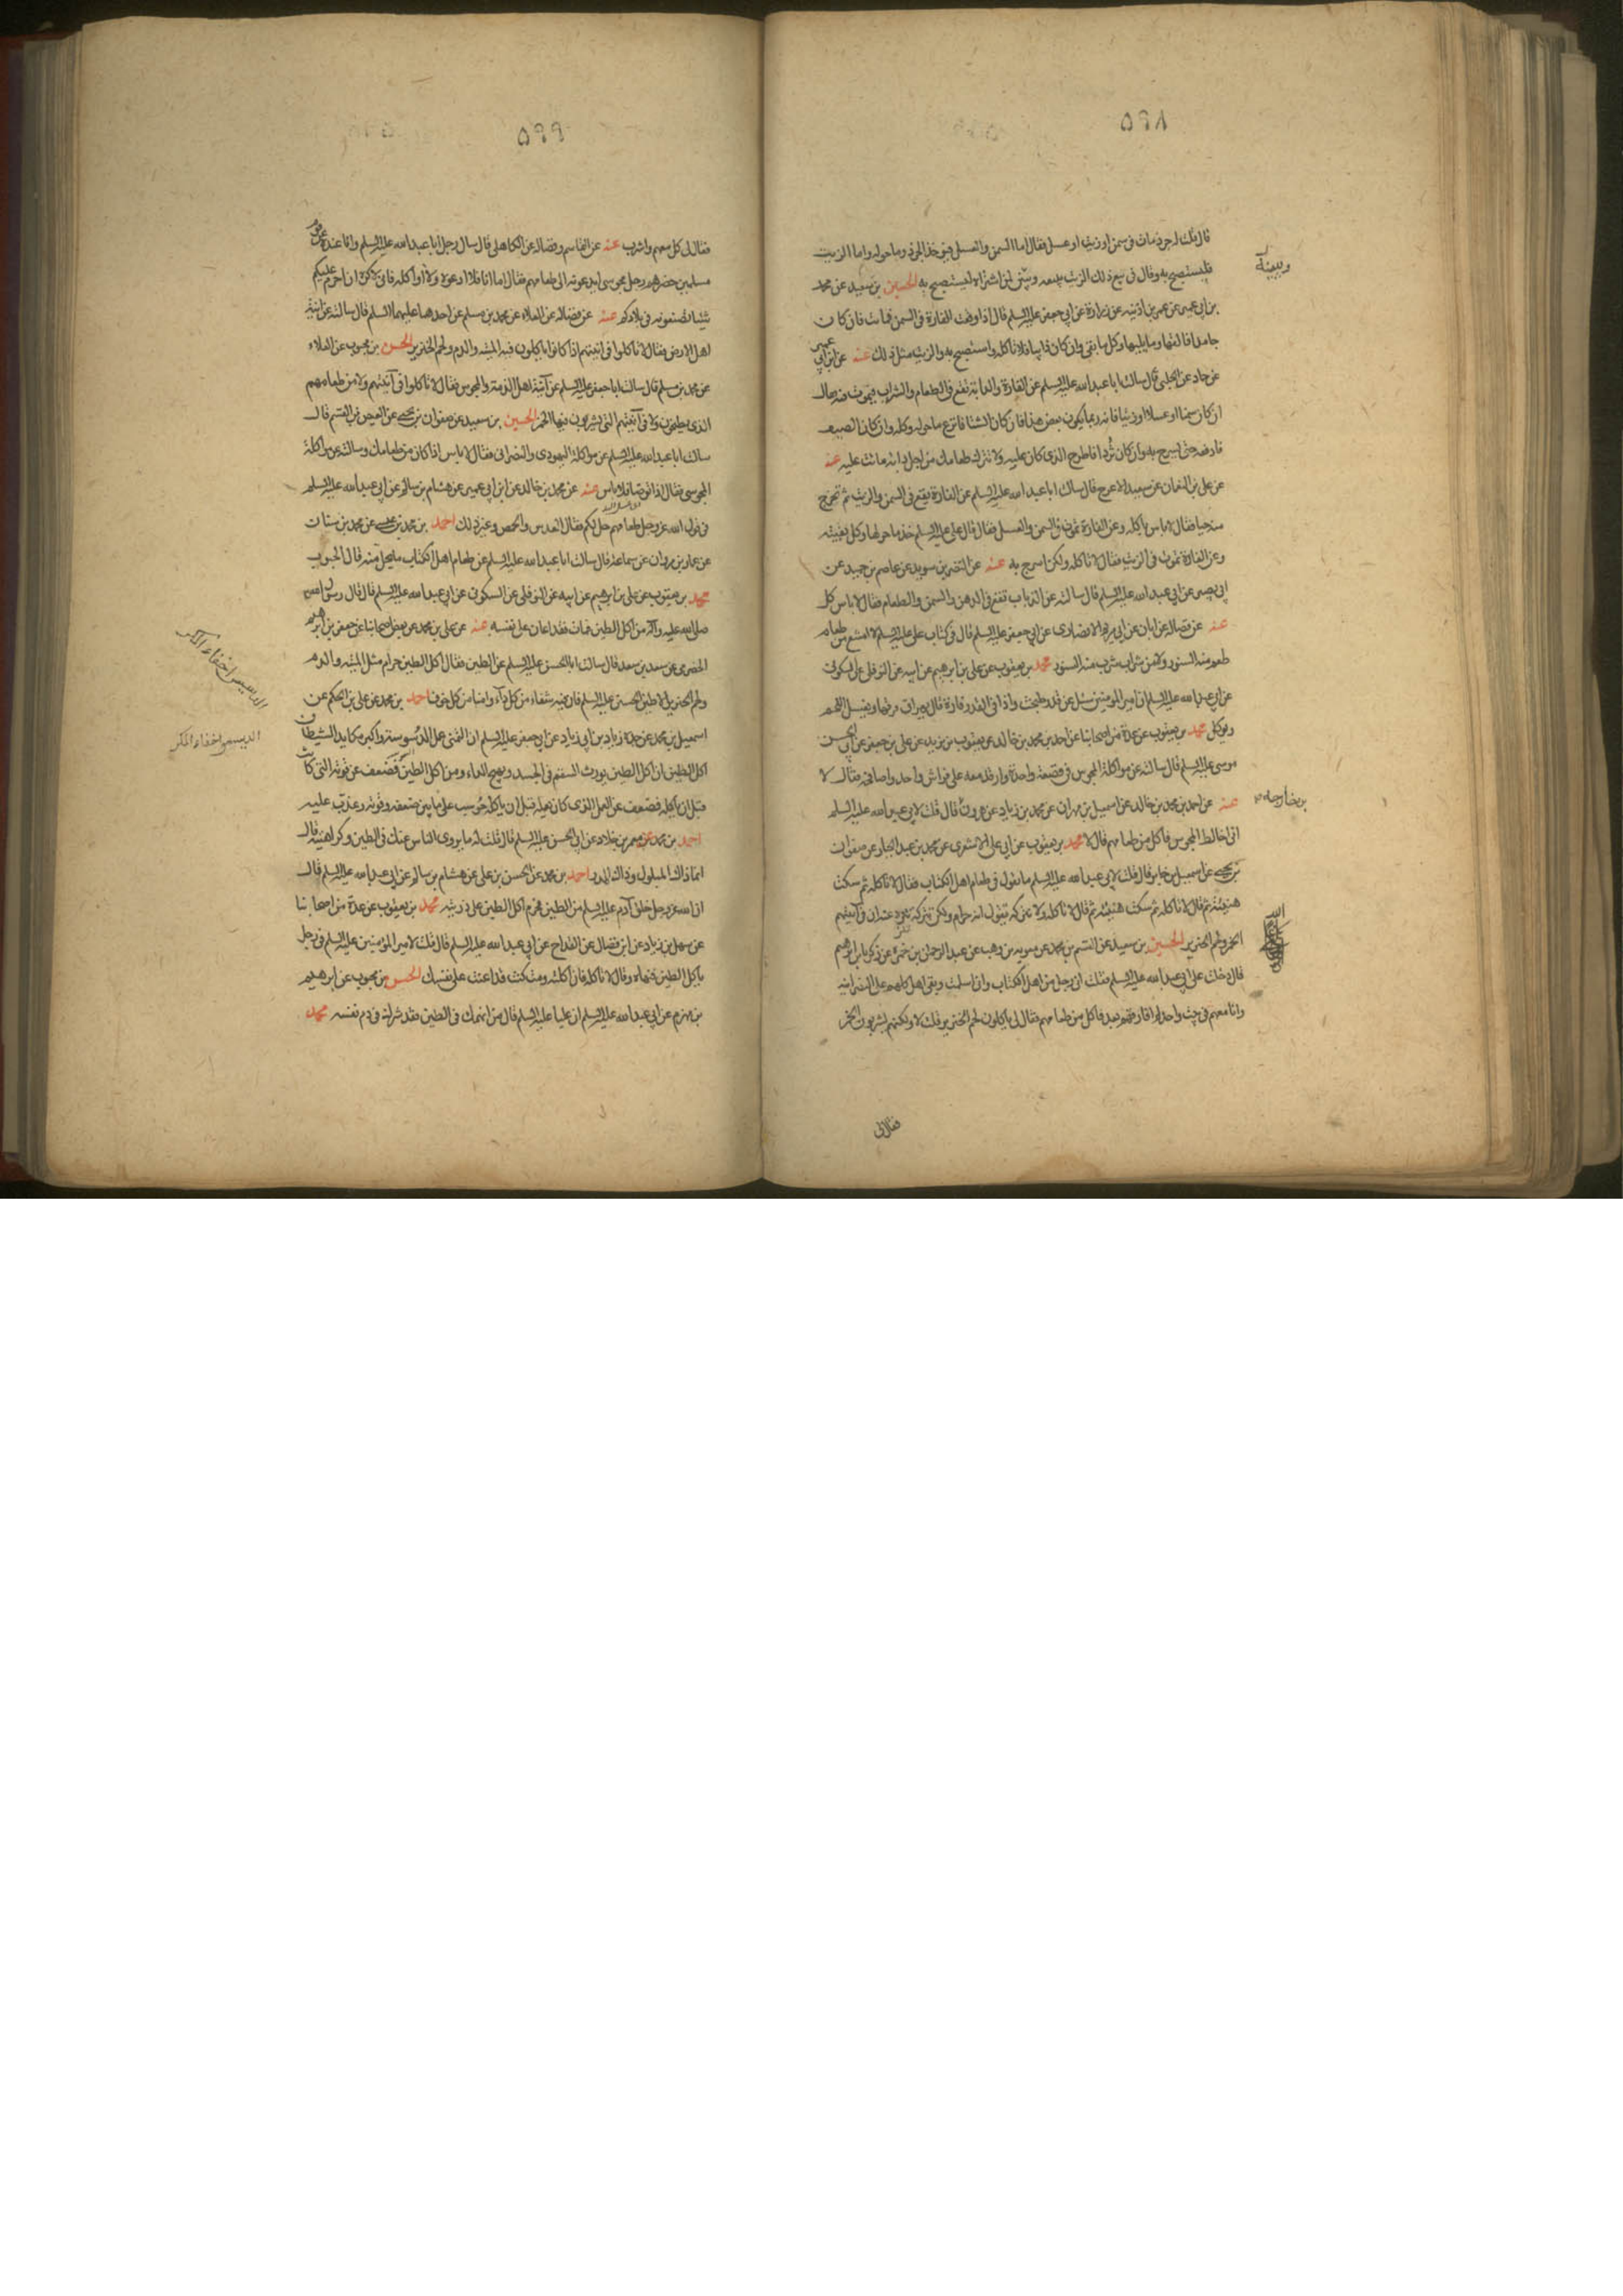 ٥٩٨
قال قلت له جرذ مات فى سمن او زيت او عسل فقال اما السمن والعسل فيؤخذ الجرذ وما حوله واما الزيت
فليستصبح به وقال فى بيع ذلك الزيت يبيعه ويبين لمن اشتراه ليستصبح به الحسين بن سعيد عن محمد
بن ابى عمير عن عمر بن اذينه عن زرارة عن ابى جعفر عليه السلم قال اذا وقعت الفارة فى السمن فماتت فان كان
جامدا فالقها وما يليها وكل ما بقى وان كان ذايبا فلا تاكله واستصبح به والزيت مثل ذلك عنه عن ابن ابى عمير
عن حماد عن الحلبى قال سالت ابا عبد الله عليه السلم عن الفارة والدابة تقع فى الطعام والشراب فيموت فيه قال
ان كان سمنا او عسلا او زيتا فانه ربما يكون بعض هذا فان كان الشتا فانزع ما حوله وكله وان كان الصيف
فارفعه حتى تسرج به وان كان ثردا فاطرح الذى كان عليه ولا تترك طعامك من اجل دابة ماتت عليه عنه
عن على بن النعمان عن سعيد الاعرج قال سالت ابا عبد الله عليه السلم عن الفارة يقع فى السمن والزيت ثم تخرج
منه حيا فقال لا باس باكله وعن الفارة تموت فى السمن والعسل فقال قال على عليه السلم خذ ما حولها وكل بقيته
وعن الفارة تموت فى الزيت فقال لا تاكله ولكن اسرج به عنه عن النضر بن سويد عن عاصم بن حميد عن
ابى بصير عن ابى عبد الله عليه السلم قال سالته عن الذباب تقع فى الدهن والسمن والطعام فقال لا باس كل
عنه عن فضاله عن ابان عن ابى مريم الانصارى عن ابى جعفر عليه السلم قال فى كتاب على عليه السلم لا امتنع من طعام
طعم منه السنور ولا من شراب شرب منه السنور محمد بن يعقوب عن على بن ابرهيم عن ابيه عن النوفلى عن السكونى
عن ابى عبد الله عليه السلم ان امير المومنين سئل عن قدر طبخت واذا فى القدر فارة قال يهراق مرقها ويغسل اللحم
ويوكل محمد بن يعقوب عن عدة من اصحابنا عن احمد بن محمد بن خالد عن يعقوب بن يزيد عن على بن جعفر عن ابى الحسن
موسى عليه السلم قال سالته عن مواكلة المجوس فى قصعة واحدة وارقد معه على فراش واحد واصافحه فقال لا
عنه عن احمد بن محمد بن خالد عن اسمعيل بن مهران عن محمد بن زياد عن هرون قال قلت لابى عبد الله عليه السلم
انى اخالط المجوس فاكل من طعامهم قال لا محمد بن يعقوب عن ابى على الاشعرى عن محمد بن عبد الجبار عن صفوان
بن يحيى عن اسمعيل بن جابر قال قلت لابى عبد الله عليه السلم ما تقول فى طعام اهل الكتاب فقال لا تاكله ثم سكت
هنيئة ثم قال لا تاكله ثم سكت هنيئة ثم قال لا تاكله ولا تتركه تقول انه حرام ولكن تتركه تنزه عنه ان فى آنيتهم
الخمر ولحم الخنزير الحسين بن سعيد عن القسم بن محمد عن معويه بن وهب عن عبد الرحمن بن حمزه عن زكريا بن ابرهيم
قال دخلت على ابى عبد الله عليه السلم فقلت انى رجل من اهل الكتاب وانى اسلمت وبقى اهلى كلهم على النصرانيه
وانا معهم فى بيت واحد لم افارقهم بعد فاكل من طعامهم فقال لى ياكلون لحم الخنزير قلت لا ولكنهم يشربون الخمر
فقال لى
ويبينه
بن خارجه
٥٩٩
فقال لى كل معهم واشرب عنه عن القاسم وفضاله عن الكاهلى قال سال رجل ابا عبد الله عليه السلم وانا عنده عن قوم
مسلمين حضرهم رجل مجوسى ايدعونه الى طعامهم فقال اما انا فلا ادعوه ولا اواكله فانى لاكره ان احرم عليكم
شيئا تصنعونه فى بلادكم عنه عن فضاله عن العلاء عن محمد بن مسلم عن احدهما عليهما السلم قال سالته عن انية
اهل الارض فقال لا تاكلوا فى انيتهم اذا كانوا ياكلون فيه الميته والدم ولحم الخنزير الحسن بن محبوب عن العلاء
عن محمد بن مسلم قال سالت ابا جعفر عليه السلم عن آنية اهل الذمة والمجوس فقال لا تاكلوا فى آنيتهم ولا من طعامهم
الذى يطبخون ولا فى آنيتهم التى يشربون فيها الخمر الحسين بن سعيد عن صفوان بن يحيى عن العيص بن القسم قال
سالت ابا عبد الله عليه السلم عن مواكلة اليهودى والنصرانى فقال لا باس اذا كان من طعامك وسالته عن مواكلة
المجوسى فقال اذا توضا فلا باس عنه عن محمد بن خالد عن ابن ابى عمير عن هشام بن سالم عن ابى عبد الله عليه السلم
فى قول الله عز وجل وطعامهم حل لكم فقال العدس والحمص وغير ذلك احمد بن محمد بن عيسى عن محمد بن سنان
عن عمار بن مروان عن سماعة قال سالت ابا عبد الله عليه السلم عن طعام اهل الكتاب ما يحل منه قال الحبوب
محمد بن يعقوب عن على بن ابرهيم عن ابيه عن النوفلى عن السكونى عن ابى عبد الله عليه السلم قال قال رسول الله
صلى الله عليه وآله من اكل الطين فمات فقد اعان على نفسه عنه عن على بن محمد عن بعض اصحابنا عن جعفر بن ابرهيم
الحضرمى عن سعد بن سعد قال سالت ابا الحسن عليه السلم عن الطين فقال اكل الطين حرام مثل الميته والدم
ولحم الخنزير الا طين الحسين عليه السلم فان فيه شفاء من كل داء وامنا من كل خوف احمد بن محمد عن على بن الحكم عن
اسمعيل بن محمد عن جده زياد بن ابى زياد عن ابى جعفر عليه السلم ان التمنى عمل الوسوسة واكبر مكايد الشيطان
اكل الطين ان اكل الطين يورث السقم فى الجسد ويهيج الداء ومن اكل الطين فضعف عن قوته التى كانت
قبل ان ياكله فضعف عن العمل الذى كان يعمله قبل ان ياكله حوسب على ما بين ضعفه وقوته وعذب عليه
احمد بن محمد عن معمر بن خلاد عن ابى الحسن عليه السلم قال قلت له ما يروى الناس عنك فى الطين وكراهيته قال
انما ذاك المبلول وذاك المدر احمد بن محمد عن الحسن بن على عن هشام بن سالم عن ابى عبد الله عليه السلم قال
ان الله عز وجل خلق آدم عليه السلم من الطين فحرم اكل الطين على ذريته محمد بن يعقوب عن عدة من اصحابنا
عن سهل بن زياد عن ابن فضال عن القداح عن ابى عبد الله عليه السلم قال قلت لامير المومنين عليه السلم فى رجل
ياكل الطين فنهاه وقال لا تاكله فان اكلته ومت كنت قد اعنت على نفسك الحسن بن محبوب عن ابرهيم
بن مهزم عن ابى عبد الله عليه السلم ان عليا عليه السلم قال من انهمك فى الطين فقد شرك فى دم نفسه محمد
الدسيس اخفاء المكر
الدسيس اخفاء المكر